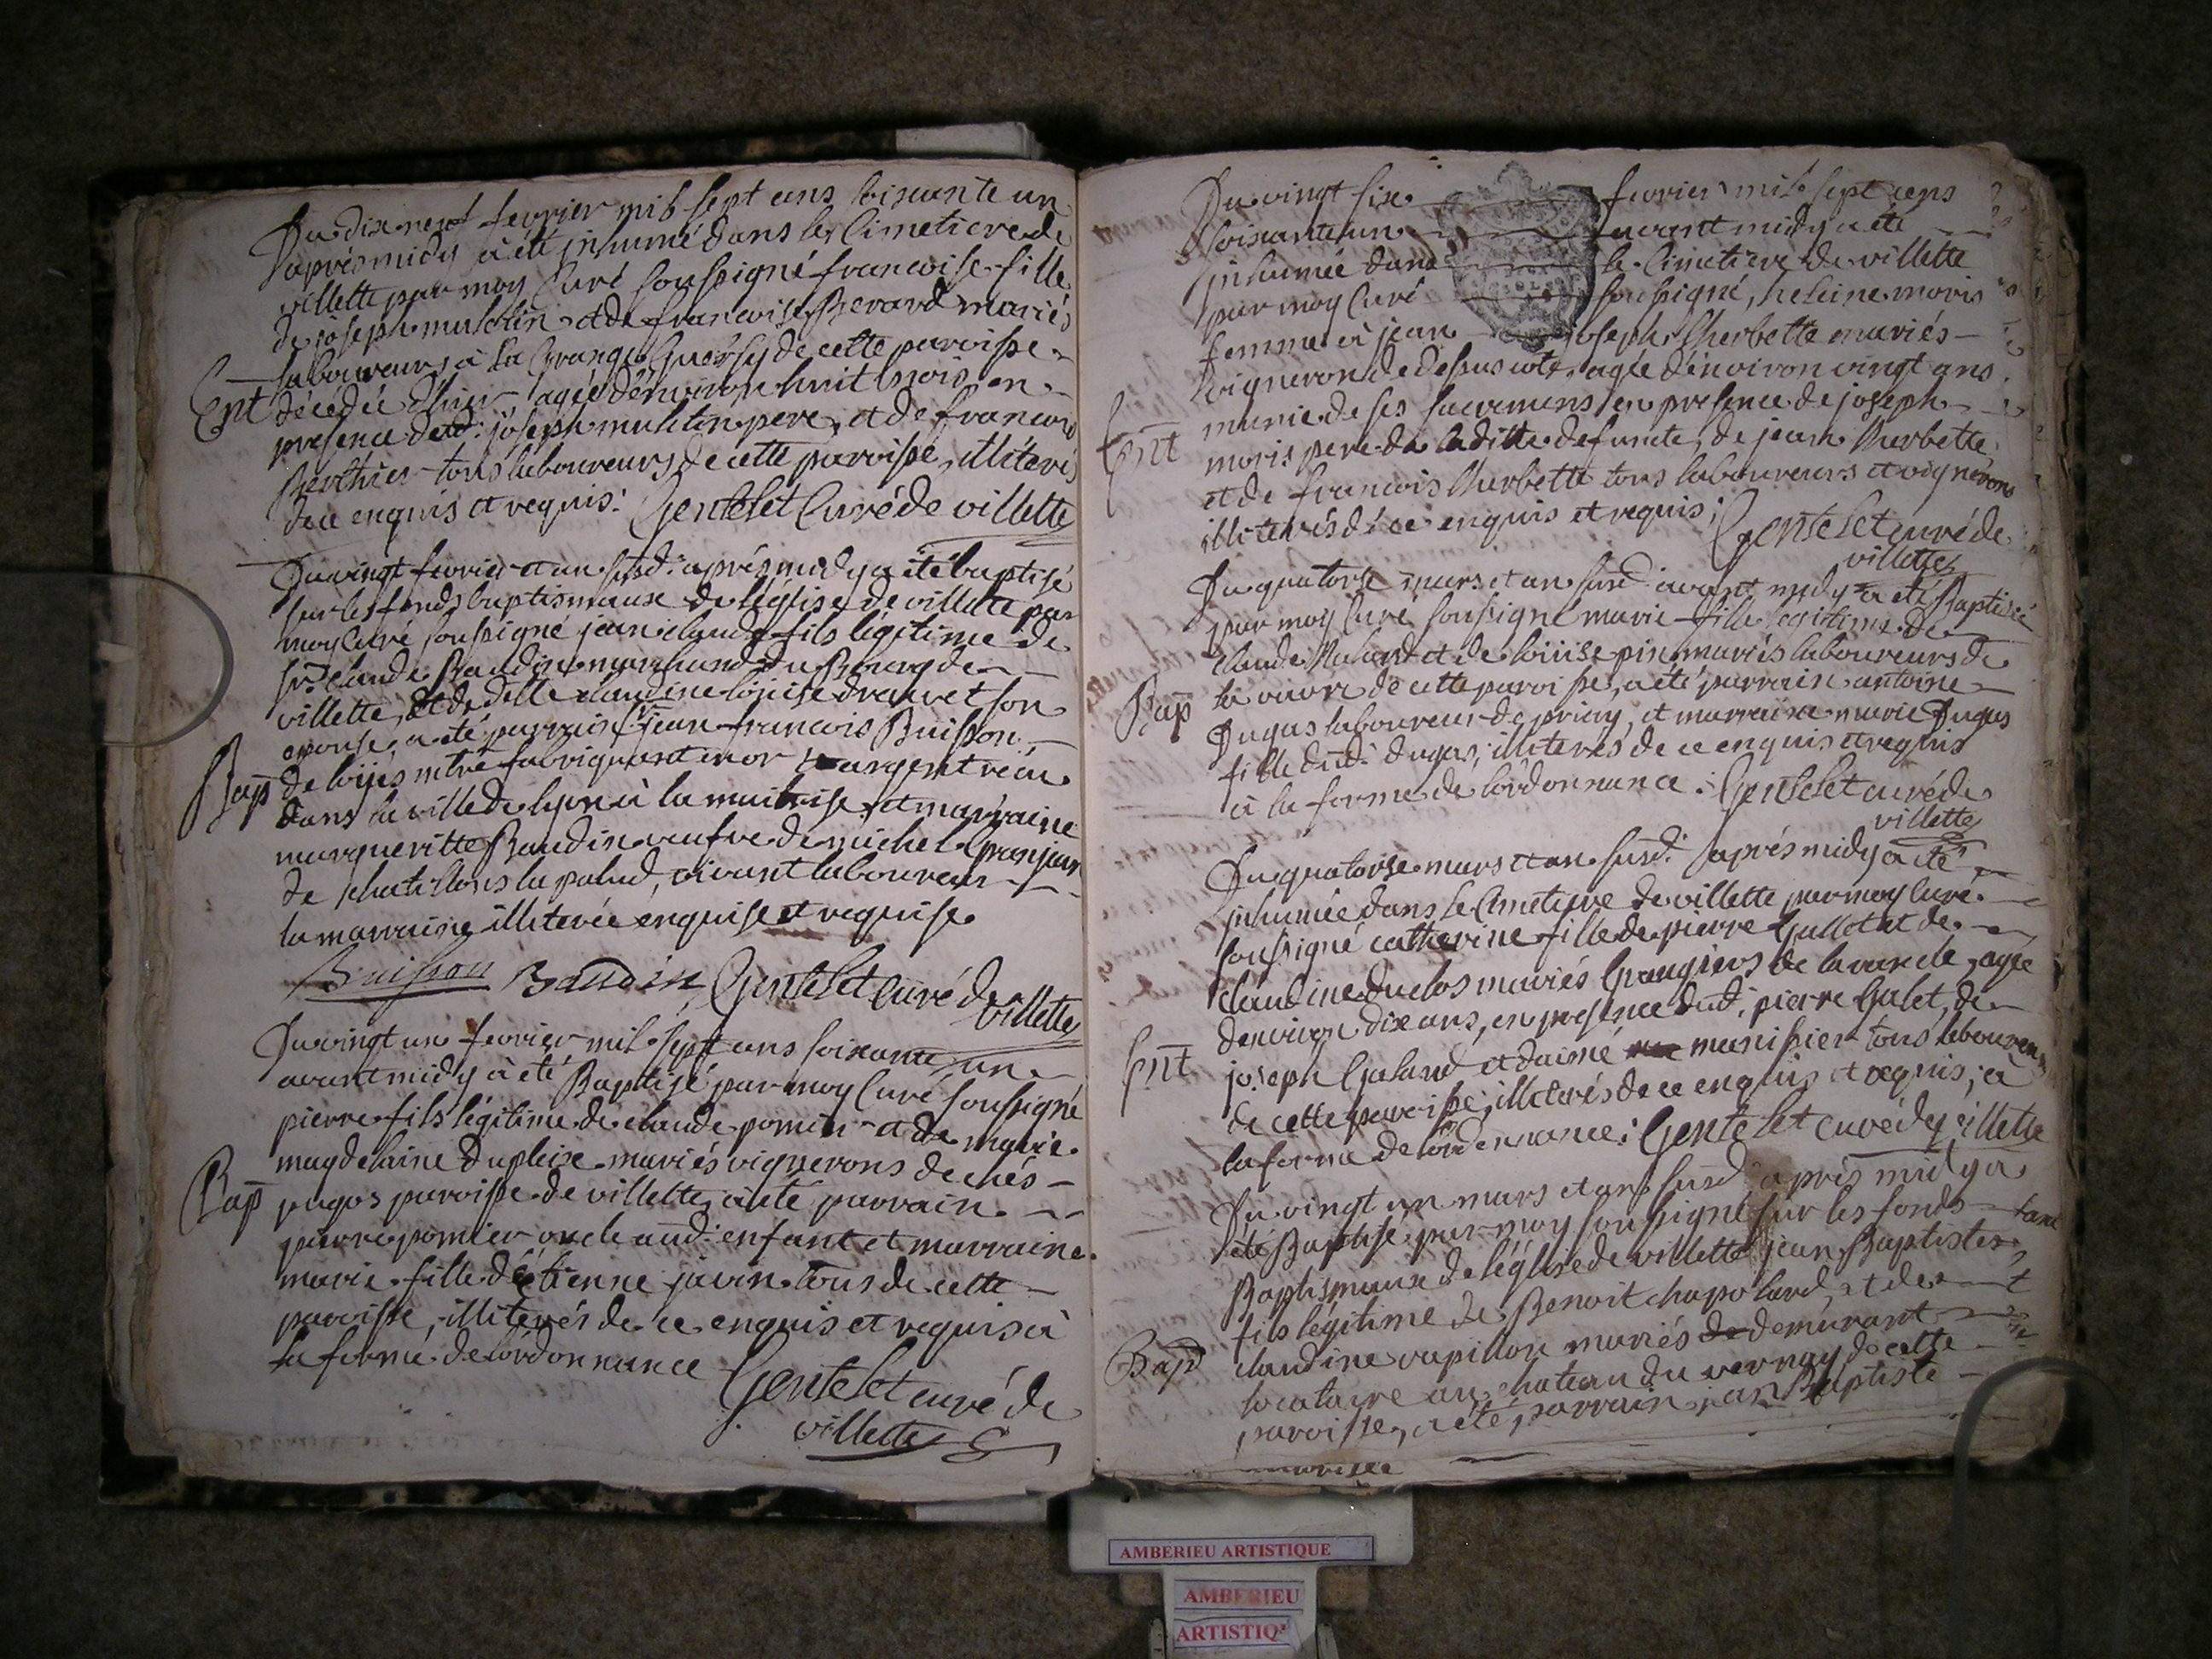 Du dix neuf fevrier mil sept cens soixante un
aprés midy à été inhumé dans le Cimetiere de
villette par moy Curé soussigné francoise fille
de joseph muletin et de francoise Berard mariés
laboureurs à la Grange de cette paroisse
Ent
décédée d'hier agée d'environ huit mois en
presence dud: joseph muletin pere, et de francois
Berthier tous laboureurs de cette paroisse, illiterés
de ce enquis et requis: Gentelet Curé de villette
Du vingt fevrier et an susd: aprés midy a été baptisé
sur les fonds baptismaux de l'église de villette par
moy Curé soussigné jean claude fils légitime de
sr. claude Baudin marchand du Bourg de
villette, et de delle claudine loüise drevet son
epouse, a été parrain sr. jean francois Buisson
Bap
de mtre fabriquant en or argent
dans la ville de lyon à la maitrise et marraine
margueritte Baudin veufve de michel Granjan
de chatillon la palud, vivant laboureur
la marraine illiterée enquise et requise
Buisson Baudin Gentelet Curé de
villette
Du vingt un fevrier mil sept cens soixante un
avant midy à été Baptisé par moy Curé soussigné
pierre fils légitime de claude pomier et de marie
magdelaine dupleix mariés vignerons de chés
Bap
pugos paroisse de villette, à été parrain
pierre pomier oncle aud: enfant et marraine
marie fille d'étienne javin tous de cette
paroisse, illiterés de ce enquis et requis à
la forme de lórdonnance
Gentelet curé de
villette
Du vingt six fevrier mil sept cens
soixante un avant midy a été
inhumée dans le Cimetiere de villette
par moy Curé soussigné, heleine moris
femme à jean joseph Cherbette mariés
vigneron de dessus cote, agée d'environ vingt ans
munie de ses sacremens en presence de joseph
Ent
moris pere de la ditte defunte, de jean Cherbette
et de francois Cherbette tous laboureurs et vignerons
illiterés de ce enquis et requis; Gentelet curé de
villette
Du quatorse mars et an susd: avant midy a été Baptisée
par moy Curé soussigné marie fille légitime de
claude et de loüise pin mariés laboureurs de
Bap
la de cette paroisse, a été parrain antoine
Dugas laboureur de priay, et marraine marie Dugas
fille dud: dugas, illiterés de ce enquis et requis
à la forme de lórdonnance: Gentelet curé de
villette
Du quatorse mars et an susd: aprés midy a été
inhumée dans le Cimetiere de villette par moy Curé
soussigné catherine fille de pierre Gallet et de
claudine duclos mariés Grangiers de la , agée
d'environ dix ans, en presence dud: pierre Galet, de
Ent
joseph Galand et daimé munissier tous laboureurs
de cette paroisse, illiterés de ce enquis et requis, à
la forme de lordonnance: Gentelet curé de villette
Du vingt un mars et an susd aprés midy a
été Baptisé par moy soussigné sur les fonds
Baptismaux de l'église de villette jean Baptiste
fils légitime de Benoit chapolard, et de
Bap
claudine rapillon mariés demeurant
locataire au chateau du vernay de cette
paroisse, a été parrain jean Baptiste
AMBERIEU ARTISTIQUE
AMBERIEU
ARTISTIQ